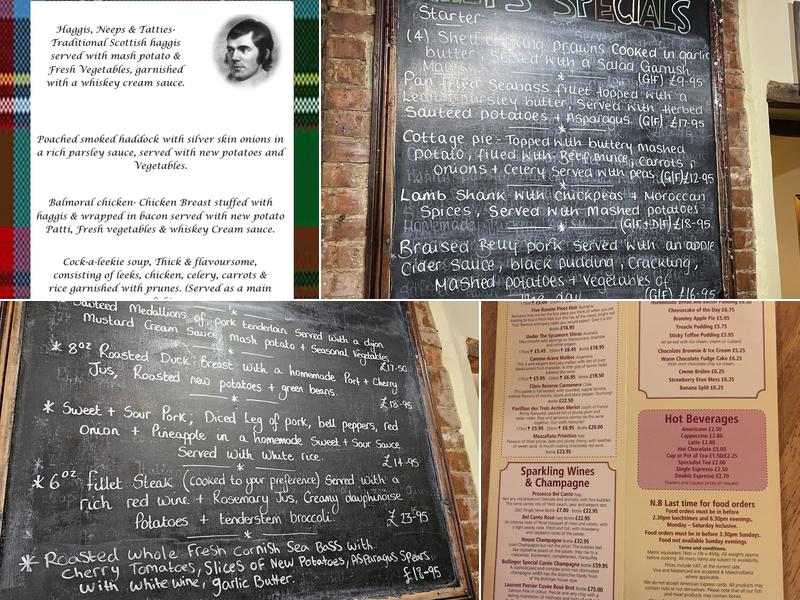 Haggis, Neeps & Tatties-
Traditional Scottish haggis
served with mash potato &
Fresh Vegetables, garnished
with a whiskey cream sauce.
Poached smoked haddock with silver skin onions in
a rich parsley sauce, served with new potatoes and
Vegetables.
Balmoral chicken- Chicken Breast stuffed with
haggis & wrapped in bacon served with new potato
Patti, Fresh vegetables & whiskey Cream sauce.
Cock-a-leekie soup, Thick & flavoursome,
consisting of leeks, chicken, celery, carrots &
rice garnished with prunes. (Served as a main
SPECIALS
Starter:
(4) Shell prawns cooked in garlic
butter, served with a Salad Garnish
(GIF) £9-95
Pan fried Seabass fillet topped with a
Parsley butter, Served with Herbed
Sauteed potatoes + Asparagus. (GIF) £17-95
Cottage pie- Topped with buttery mashed
potato, filled with Beef mince, carrots,
onions + Celery Served with peas. (GIF) £12-95
Lamb Shank with Chickpeas + Moroccan
Spices, Served with Mashed potatoes
(GIF+DIF) £18-95
Braised Belly pork Served with an apple
Cider Sauce, black pudding, Crackling,
Mashed potatoes + Vegetables of
(GIF) £16-95
Sauteed Medallions of pork tenderloin served with a dijon
Mustard Cream Sauce, mash potato + Seasonal Vegetables
£17.50
* 8oz Roasted Duck Breast with a homemade Port + Cherry
Jus, Roasted new potatoes + green beans.
£18-95
* Sweet + Sour Pork; Diced Leg of pork, bell peppers, red
Onion + Pineapple in a homemade Sweet + Sour Sauce
Served with white rice.
£14-95
* 6oz Fillet Steak (cooked to your preference) Served with a
rich red wine + Rosemary Jus, Creamy dauphinoise
Potatoes + tenderstem broccoli.
£23-95
* Roasted Whole Fresh Cornish Sea Bass with
Cherry Tomatoes, Slices of New Potatoes, Asparagus Spears
with white wine, garlic Butter.
£18-95
Five Ravens Pinot Noir Romania
Bottle £18.95
Under The Sycamore Shiraz Australia
175ml £5.45 250ml £6.45 Bottle £18.95
Camino Azure Malbec Argentina
175ml £5.95 250ml £6.95 Bottle £19.50
Clara Reserva Carmenere Chile
Bottle £22.50
Pavillion des Trois Arches Merlot South of France
Bottle £20.00
Mozzafiato Primitivo Italy
Bottle £23.95
Sparkling Wines
& Champagne
Prosecco Bel Canto Italy
20cl Single Serve £7.00 Bottle £22.95
Bel Canto Rosé Bottle £22.95
House Champagne Bottle £32.95
Bollinger Special Cuvée Champagne £59.95
Laurent Perrier Cuvée Rosé Brut £75.00
Homemade Bread and Butter Pudding £6.50
Cheesecake of the Day £6.75
Bramley Apple Pie £5.95
Treacle Pudding £5.75
Sticky Toffee Pudding £5.95
All served with ice cream, cream or custard
Chocolate Brownie & Ice Cream £5.25
Warm Chocolate Fudge Cake £6.25
Creme Brûlée £6.25
Strawberry Eton Mess £6.25
Banana Split £6.25
Hot Beverages
Americano £2.50
Cappuccino £2.80
Latte £2.80
Hot Chocolate £3.00
Cup or Pot of Tea £1.50/£2.25
Specialist Tea £2.00
Single Espresso £2.50
Double Espresso £2.70
N.B Last time for food orders
Food orders must be in before
2.30pm lunchtimes and 8.30pm evenings,
Monday – Saturday inclusive.
Food orders must be in before 3.30pm Sundays.
Food not available Sunday evenings
Terms and conditions.
Prices include VAT, at the current rate.
where applicable.
We do not accept American Express cards.